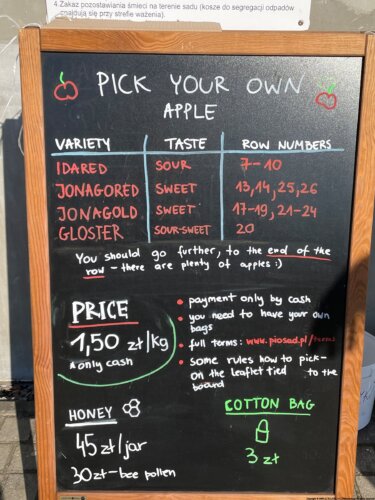 4. Zakaz pozostawiania śmieci na terenie sadu (kosze do segregacji odpadów
znajdują się przy strefie ważenia).
PICK YOUR OWN
APPLE
VARIETY TASTE ROW NUMBERS
IDARED SOUR 7-10
JONAGORED SWEET 13,14,25,26
JONAGOLD SWEET 17-19,21-24
GLOSTER SOUR-SWEET 20
You should go further, to the end of the
row - there are plenty of apples :)
PRICE
1,50 zł/kg
*only cash
• payment only by cash
• you need to have your own
bags
• full terms: www.piosad.pl/terms
• some rules how to pick-
on the leaflet tied to the
board
HONEY
45 zł/jar
30 zł-bee pollen
COTTON BAG
3 zł